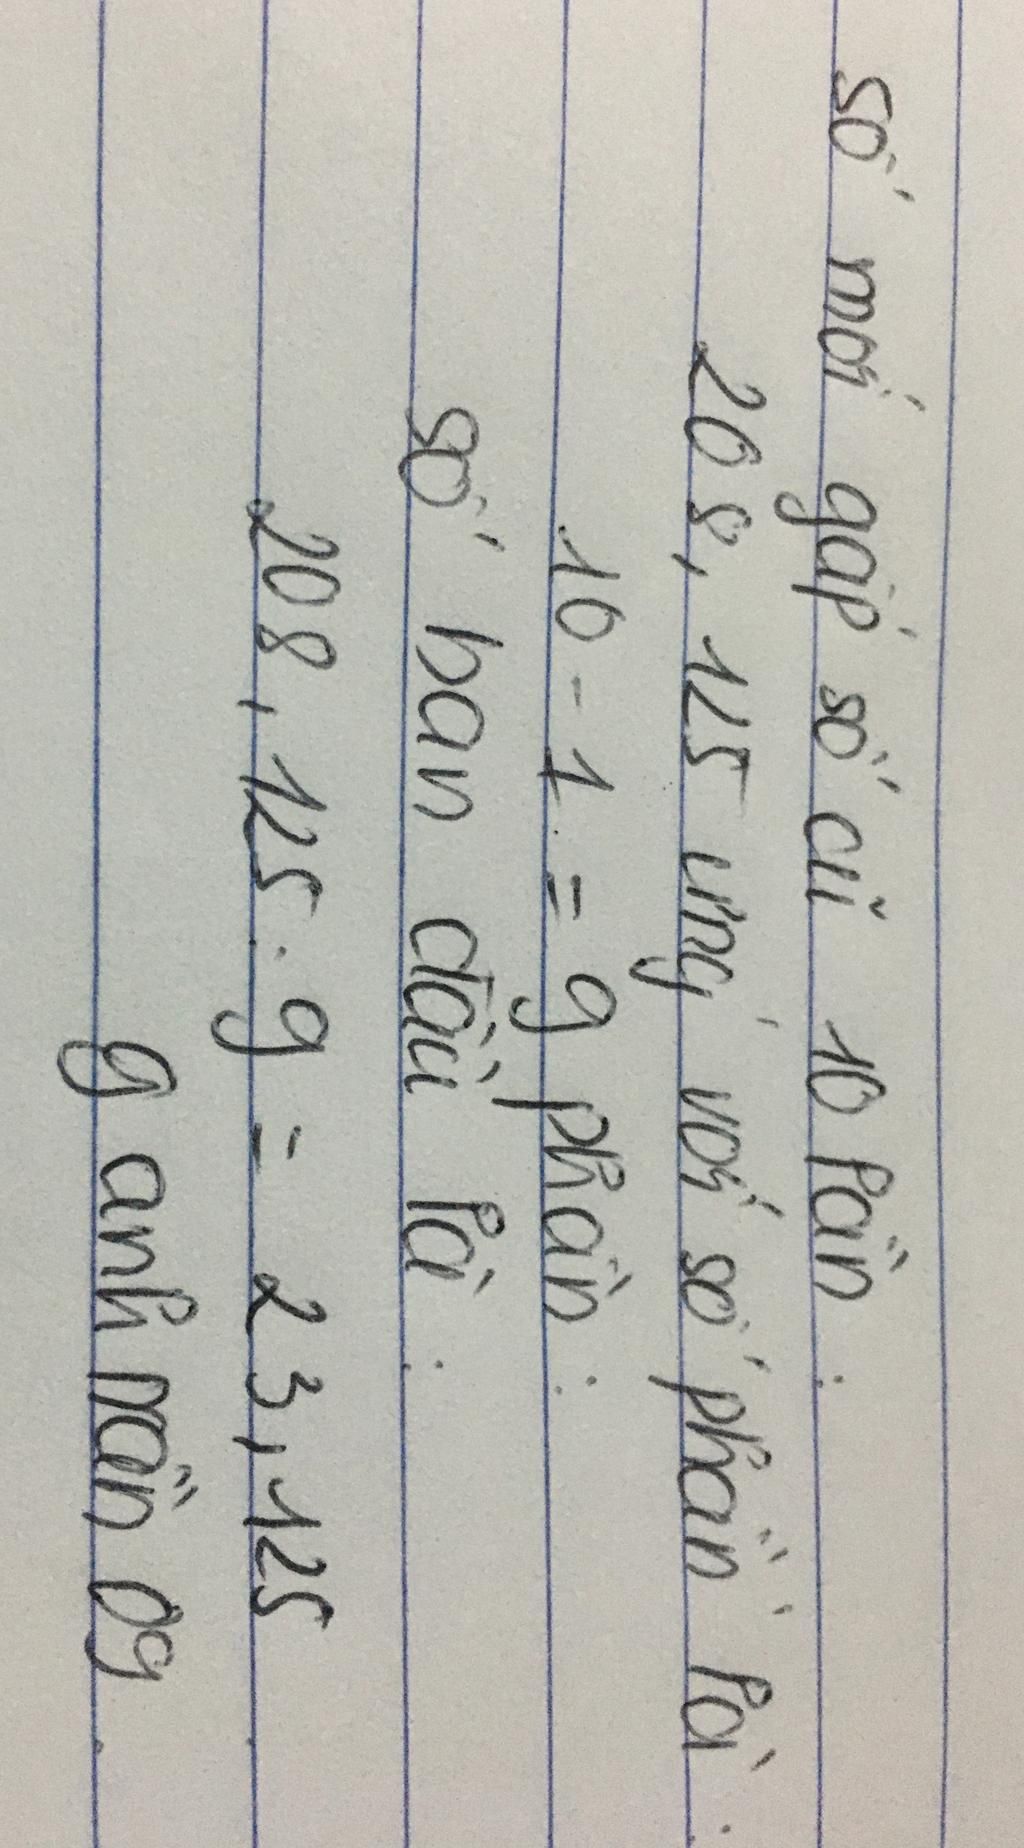 số mới gấp số cũ 10 lần :
208,125 ứng với số phần là :
10 - 1 = 9 phần :
số ban đầu là :
208,125 : 9 = 23,125
9 anh